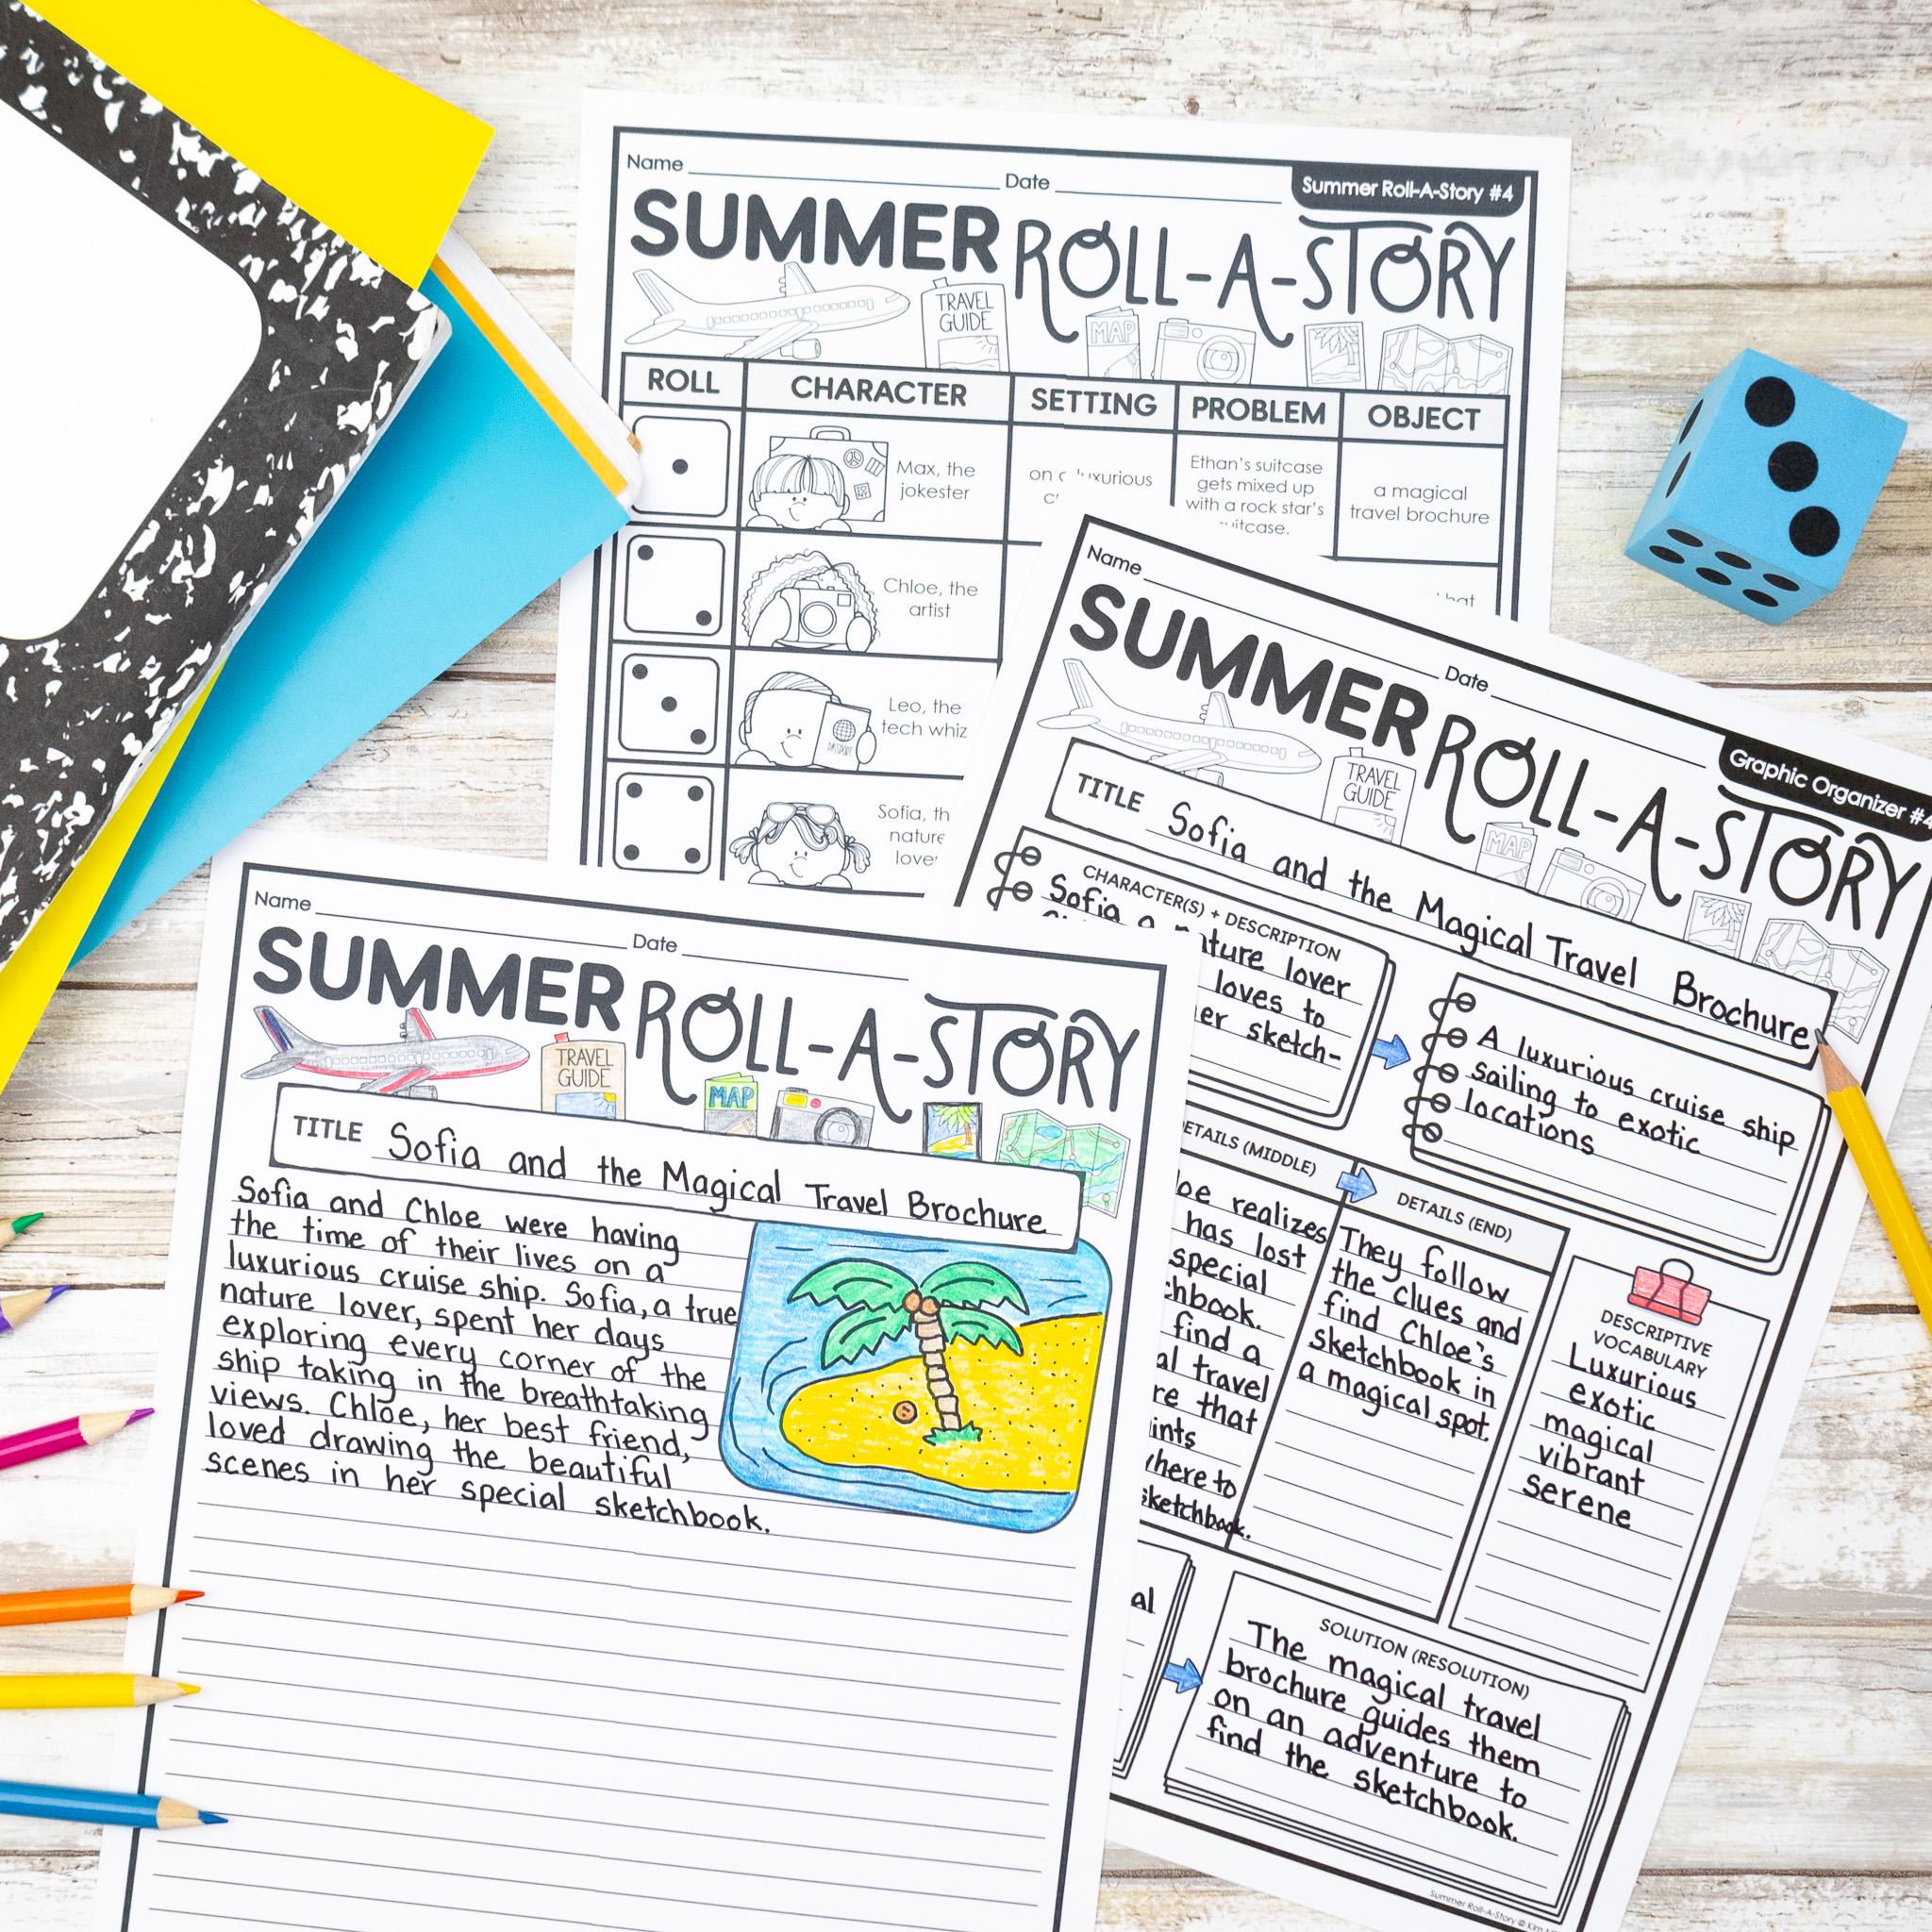 Name Date
Summer Roll-A-Story #4
SUMMER ROLL-A-STORY
TRAVEL
GUIDE
MAP
ROLL CHARACTER SETTING PROBLEM OBJECT
Max, the
jokester
on a luxurious
Ethan's suitcase
gets mixed up
with a rock star's
suitcase.
a magical
travel brochure
Chloe, the
artist
Leo, the
tech whiz
PASSPORT
Sofia, the
nature
lover
Name Date
Graphic Organizer #4
SUMMER ROLL-A-STORY
TRAVEL
GUIDE
MAP
TITLE Sofia and the Magical Travel Brochure
CHARACTER(S) + DESCRIPTION
Sofia a nature lover
loves to
her sketch-
A luxurious cruise ship
sailing to exotic
locations
DETAILS (MIDDLE)
realizes
has lost
special
find a
travel
that
where to
sketchbook.
DETAILS (END)
They follow
the clues and
find Chloe's
sketchbook in
a magical spot.
DESCRIPTIVE
VOCABULARY
Luxurious
exotic
magical
vibrant
serene
SOLUTION (RESOLUTION)
The magical travel
brochure guides them
on an adventure to
find the sketchbook.
Summer Roll-A-Story © Kim
Name Date
SUMMER ROLL-A-STORY
TRAVEL
GUIDE
MAP
TITLE Sofia and the Magical Travel Brochure
Sofia and Chloe were having
the time of their lives on a
luxurious cruise ship. Sofia, a true
nature lover, spent her days
exploring every corner of the
ship taking in the breathtaking
views. Chloe, her best friend,
loved drawing the beautiful
scenes in her special sketchbook.